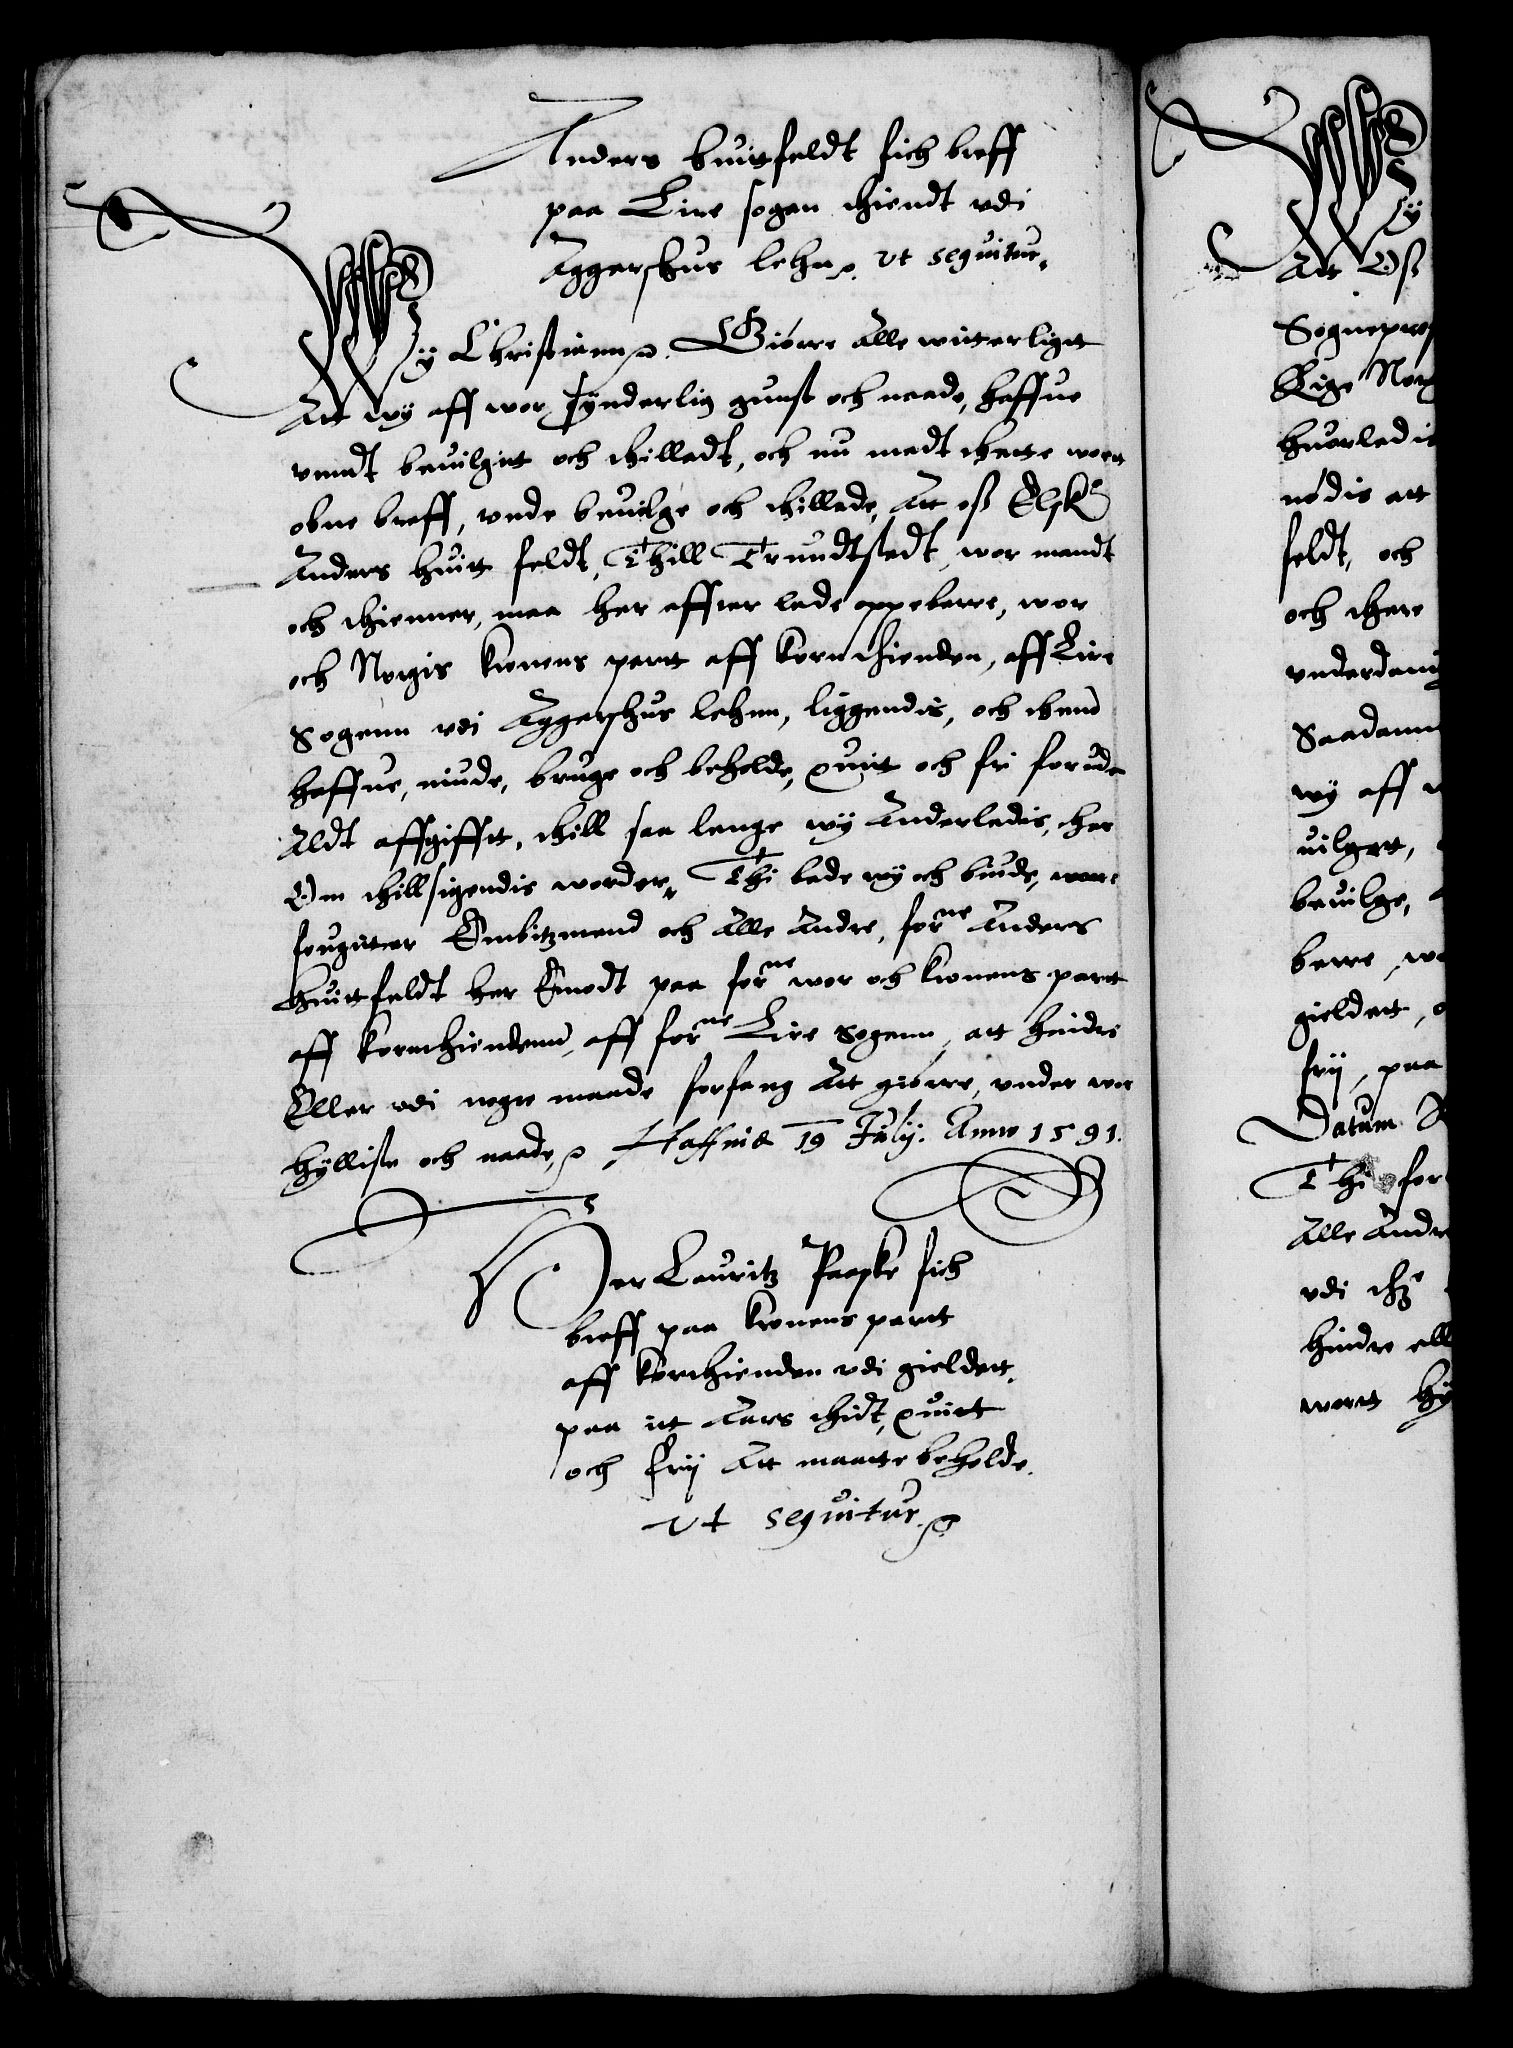 Anders huittfeldt fich breff
paa Lire sogen thiendt vdi
Aggershus lehn ut seqvitur.
Wij Christiann Giórre Alle witterligtt
Att wij aff wor sÿnderlig gunst och naade, haffue
vnndt beuilgitt och thilladt, och nu medt thette wortt
obne breff, vnde beuilge och thillade, Att oss Elsk
Anders huitt feldt, Thill Trundtstadt, wor mandt
och thienner, maa her effter lade oppeberre, wor
och Norgis kronens partt aff kornthienden, aff Lire
Sogenn vdi Aggershus lehnn, liggendis, och thend
haffue, niude, bruge och beholde, quit och fri foruden
Aldt affgifft, thill saa lenge wij Anderledis, ther
Om thillsigendis worder, Thi bede wij och biude, wore
fougitter Embitzmend och Alle Andre, forne Anders
huittfeldt her Emodt paa forne wor och kronens partt
aff kornthiendenn, aff forne Lire Sogenn, att hindre
Eller vdi nogre maade forfang Att giórre, under wor
hÿlliste och naade, Haffniæ 19 Julij. Anno 1591.
Her Lauritz Paaske fich
breff paa kronens partt
aff kornthienden vdi gieldett,
paa itt Aars thidt, quitt
och frij Att maatte beholde.
ut seqvitur.
Wij
Att Oss
Sognepres
Rige Nor
huorledis
nódis att
feldt, och
och there
vnderdanig
Saadann
wij aff
uilgett,
beuilge,
berre, wo
gieldett, o
frij, paa
Datum
Thi for
Alle Andre
vdi
hindre ell
wortt hÿ